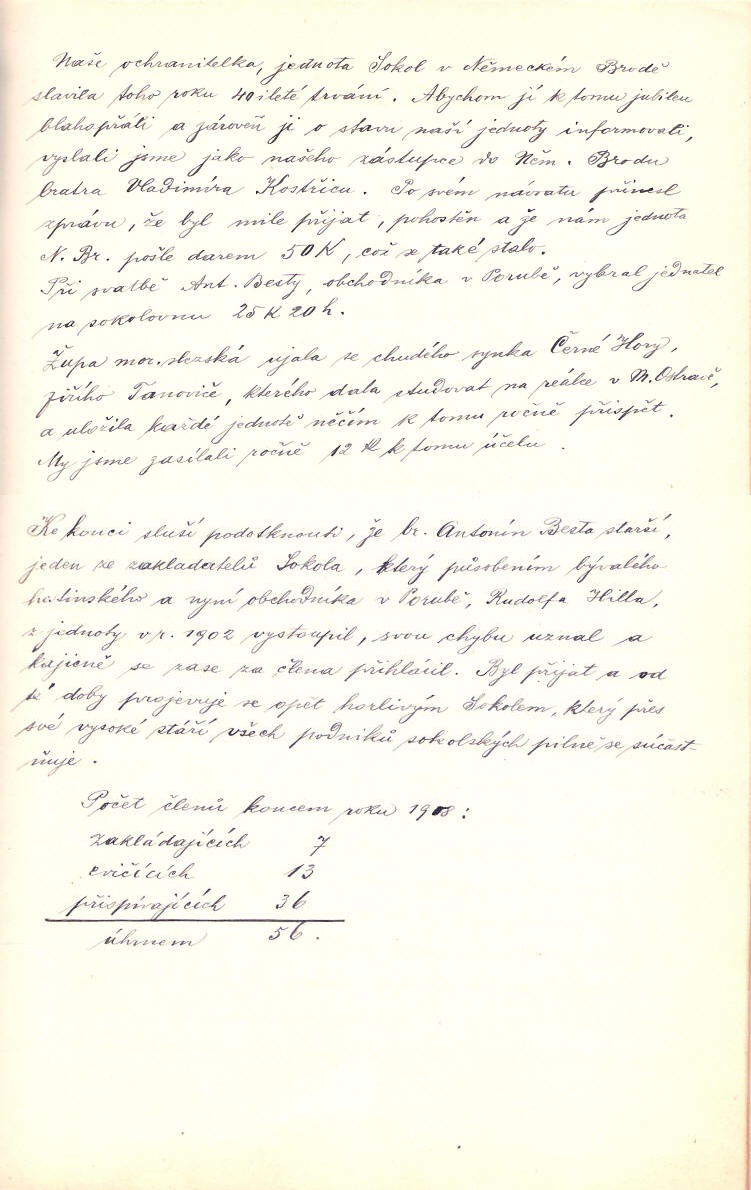 Naše ochranitelka, jednota Sokol v Německém Brodě
slavila toho roku 40ileté trvání. Abychom jí k tomu jubileu
blahopřáli a zároveň ji o stavu naší jednoty informovali,
vyslali jsme jako našeho zástupce do Něm. Brodu
bratra Vladimíra Kostřicu. Po svém návratu přinesl
zprávu, že byl mile přijat, pohostěn a že nám jednota
N. Br. pošle darem 50 K, což se také stalo.
Při svatbě Ant. Besty, obchodníka v Porubě, vybral jednatel
na sokolovnu 25 K 20 h.
Župa mor. slezská ujala se chudého synka Černé Hory,
Jiřího Tanoviče, kterého dala studovat na reálce v M. Ostravě,
a uložila každé jednotě něčím k tomu ročně přispět.
My jsme zasílali ročně 12 K k tomu účelu.
Ke konci sluší podotknouti, že br. Antonín Besta starší,
jeden ze zakladatelů Sokola, který působením bývalého
hostinského a nyní obchodníka v Porubě, Rudolfa Hilla,
z jednoty v r. 1902 vystoupil, svou chybu uznal a
kajícně se zase za člena přihlásil. Byl přijat a od
té doby projevuje se opět horlivým Sokolem, který přes
své vysoké stáří všech podniků sokolských pilně se súčast-
ňuje.
Počet členů koncem roku 1908:
zakládajících 7
cvičících 13
přispívajících 36
úhrnem 56.